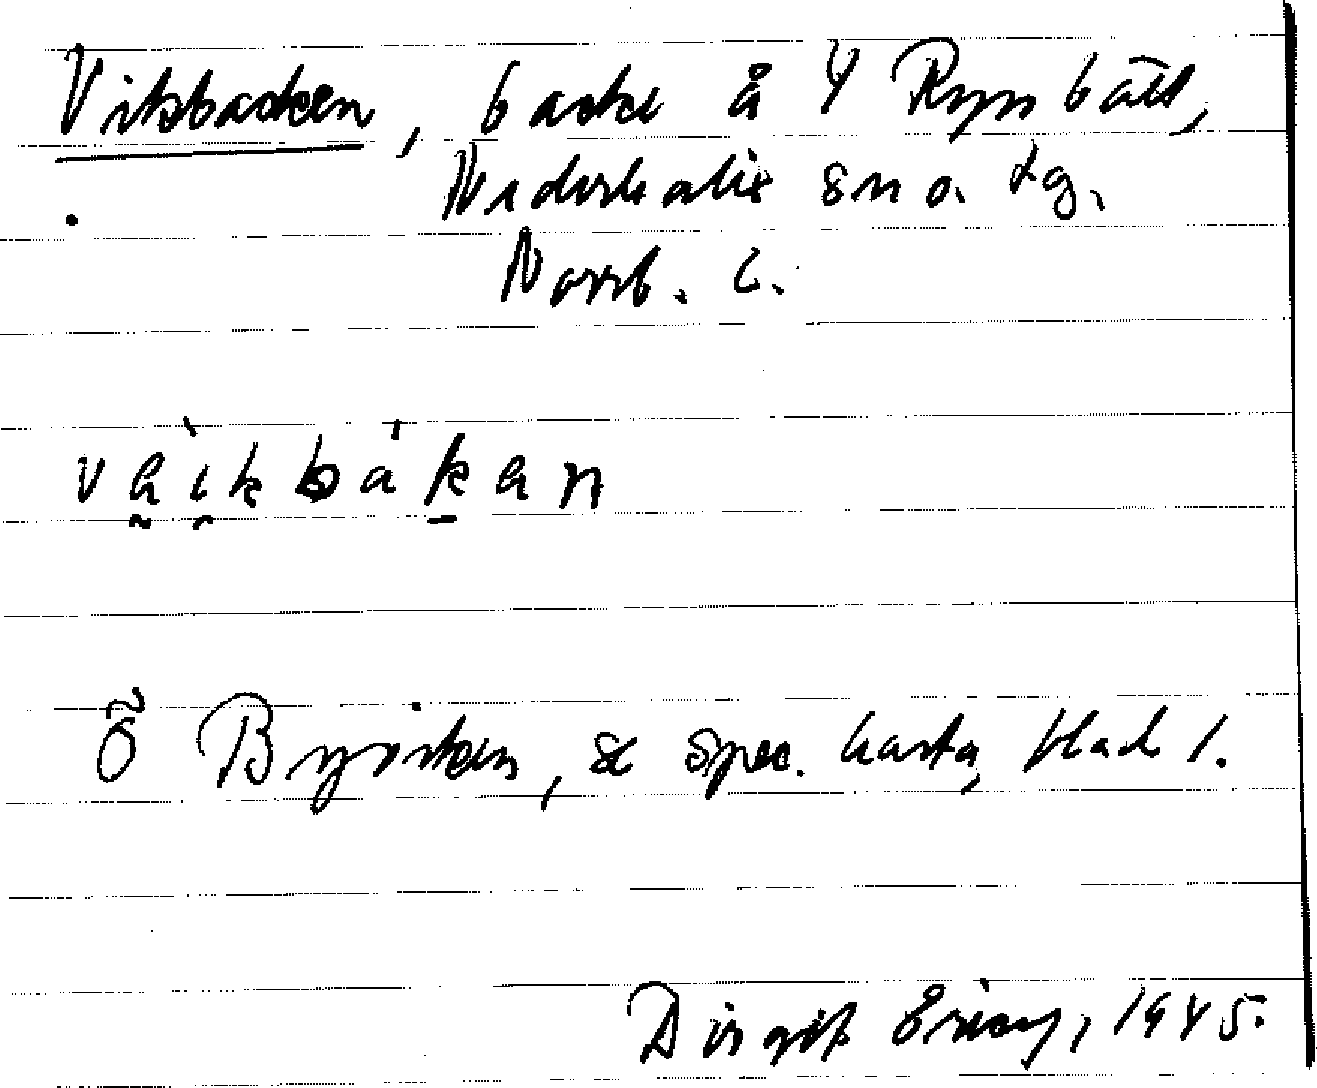 Vitbacken, backe å Y Rynbäck,
Nederkalix sn o. tg.
Norrb. l.
vaikbákan
Ö Byviken, se spec. karta, blad 1.
Birgit Ericy, 1945.